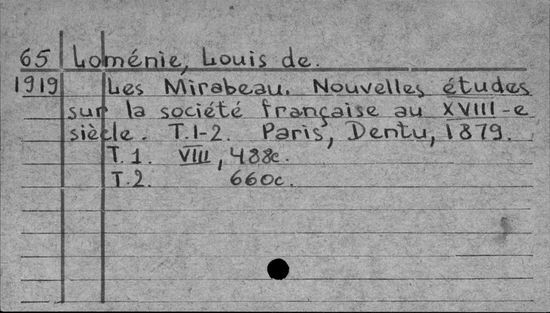 65 Loménie, Louis de.
1919 Les Mirabeau. Nouvelles études
sur la société française au XVIII-e
siècle. T.1-2. Paris, Dentu, 1879.
T.1. VIII, 488c.
T.2. 660c.